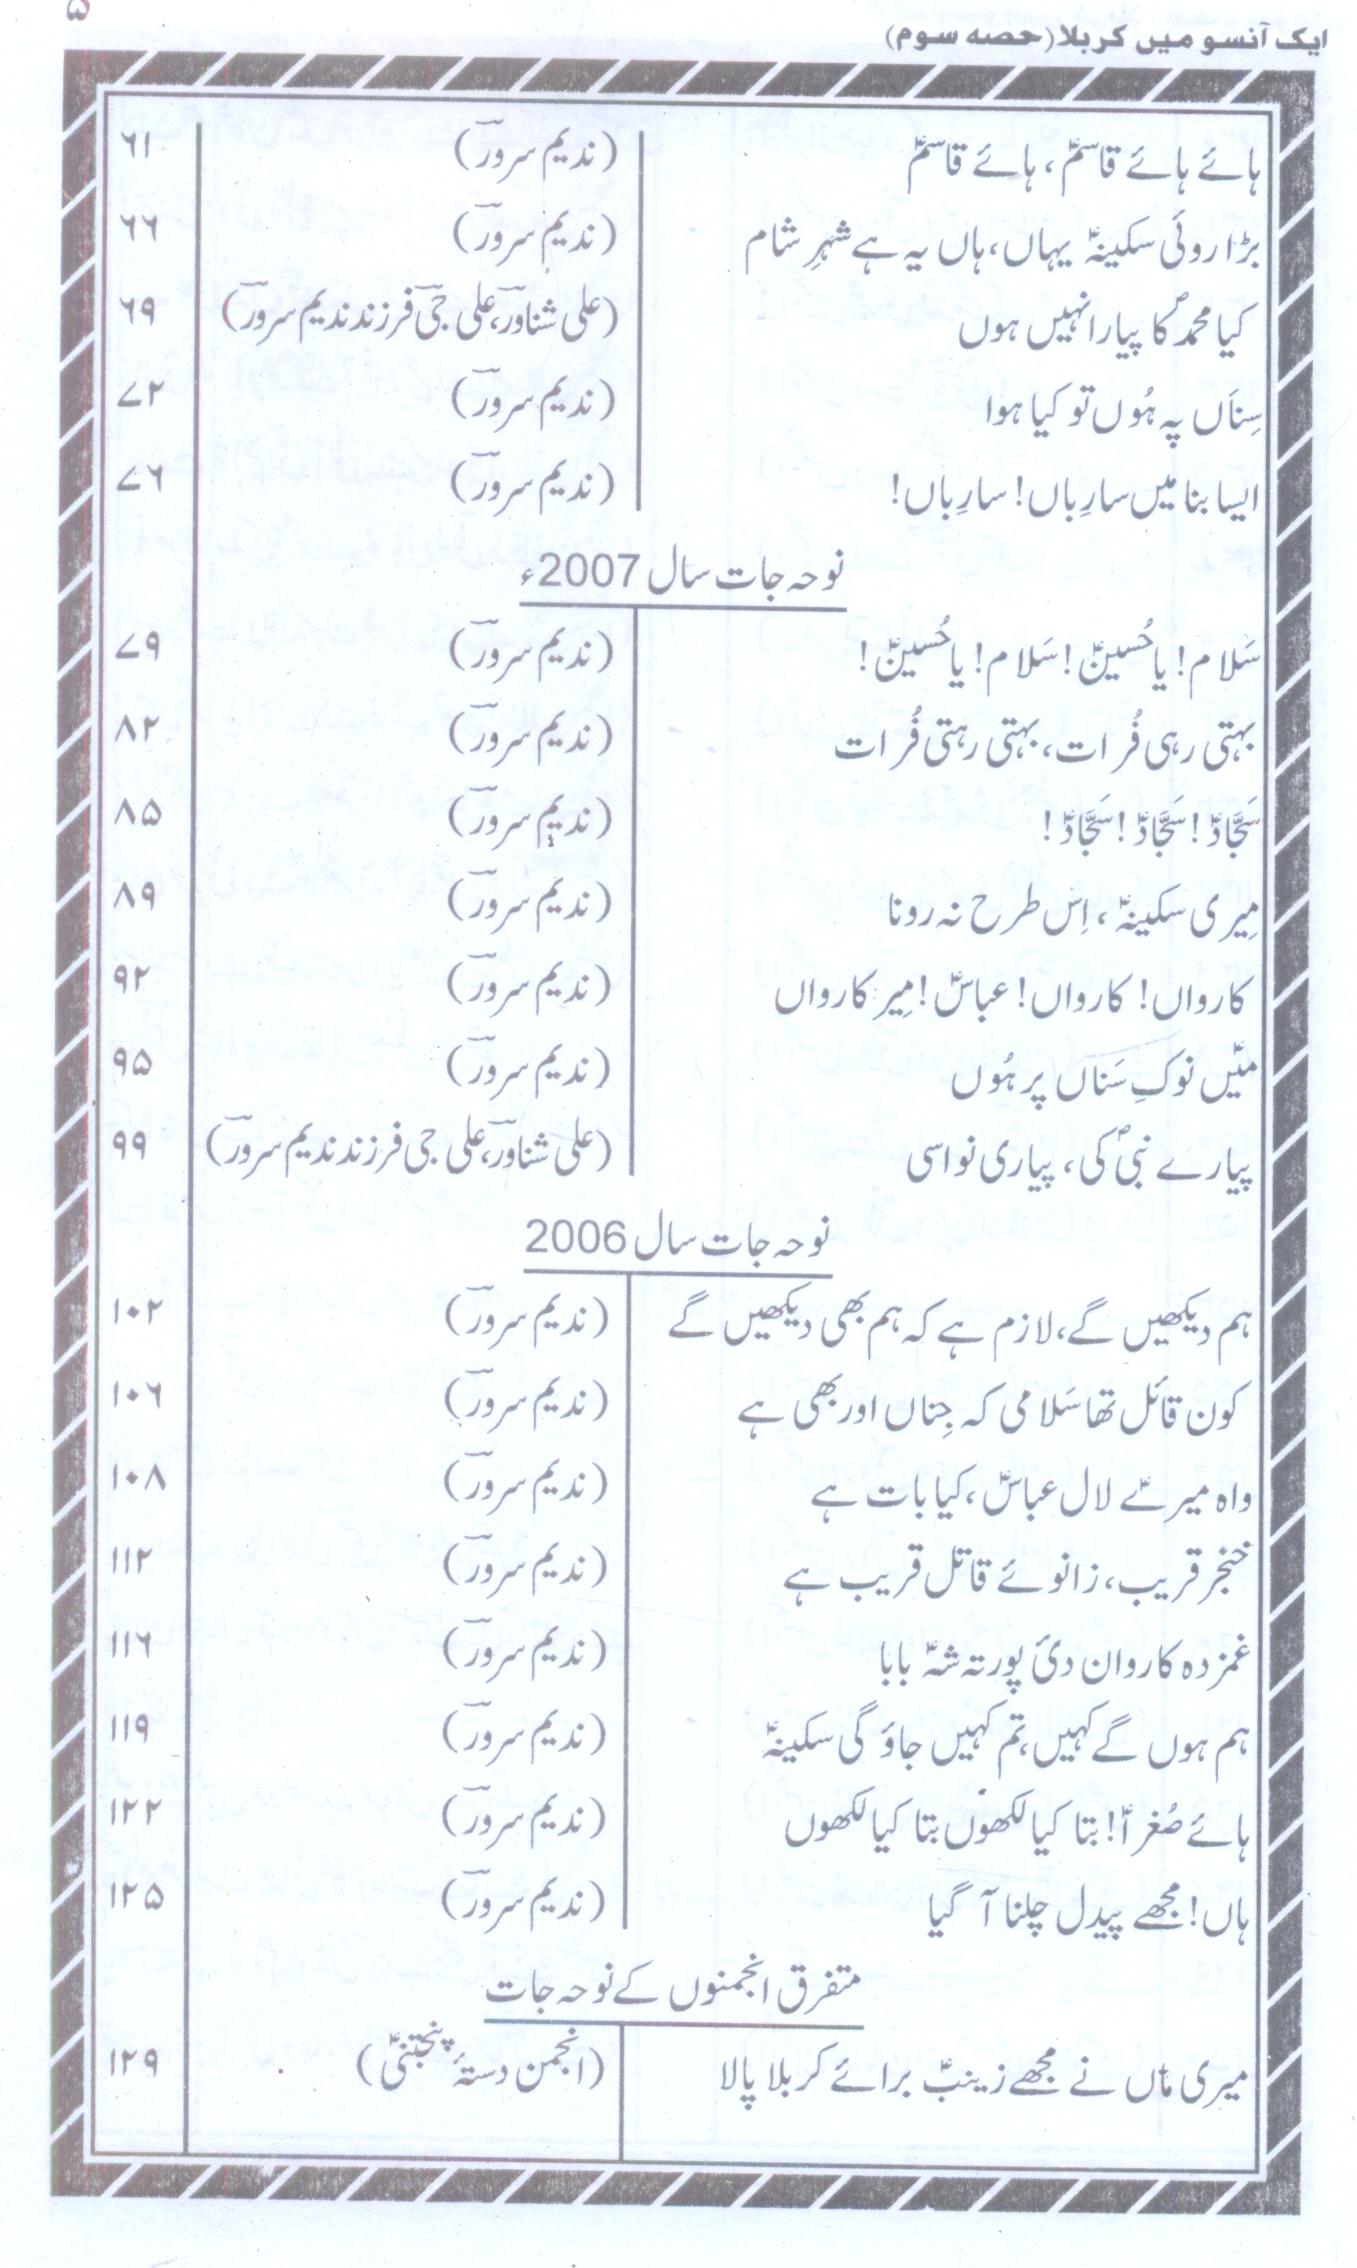 ایک آنسو میں کربلا (حصہ سوم) ۵
ہائے ہائے قاسمؑ، ہائے قاسمؑ (ندیم سرور) ۶۱
بڑا روئی سکینہؑ یہاں، ہاں یہ ہے شہرِ شام (ندیم سرور) ۶۶
کیا محمدؐ کا پیارا نہیں ہوں (علی شناور، علی جی فرزند ندیم سرور) ۶۹
سِناں پہ ہُوں تو کیا ہوا (ندیم سرور) ۷۲
ایسا بنا میں سارِباں! سارِباں! (ندیم سرور) ۷۶
نوحہ جات سال 2007ء
سَلام! یا حُسینؑ! سَلام! یا حُسینؑ! (ندیم سرور) ۷۹
بہتی رہی فُرات، بہتی رہتی فُرات (ندیم سرور) ۸۲
سَجَّادؑ! سَجَّادؑ! سَجَّادؑ! (ندیم سرور) ۸۵
مِیری سکینہؑ، اِس طرح نہ رونا (ندیم سرور) ۸۹
کارواں! کارواں! عباسؑ! مِیر کارواں (ندیم سرور) ۹۲
میں نوکِ سَناں پر ہُوں (ندیم سرور) ۹۵
پیارے نبیؐ کی، پیاری نواسی (علی شناور، علی جی فرزند ندیم سرور) ۹۹
نوحہ جات سال 2006
ہم دیکھیں گے، لازم ہے کہ ہم بھی دیکھیں گے (ندیم سرور) ۱۰۲
کون قائل تھا سَلامی کہ جِناں اور بھی ہے (ندیم سرور) ۱۰۶
واہ میرے لال عباسؑ، کیا بات ہے (ندیم سرور) ۱۰۸
خنجر قریب، زانوئے قاتل قریب ہے (ندیم سرور) ۱۱۲
غمزدہ کاروان دئ پورتہ شہ بابا (ندیم سرور) ۱۱۶
ہم ہوں گے کہیں، تم کہیں جاؤ گی سکینہؑ (ندیم سرور) ۱۱۹
ہائے صُغراؑ! بتا کیا لکھوں بتا کیا لکھوں (ندیم سرور) ۱۲۲
ہاں! مجھے پیدل چلنا آ گیا (ندیم سرور) ۱۲۵
متفرق انجمنوں کے نوحہ جات
میری ماں نے مجھے زینبؑ برائے کربلا پالا (انجمن دستۂ پنجتنیؑ) ۱۲۹